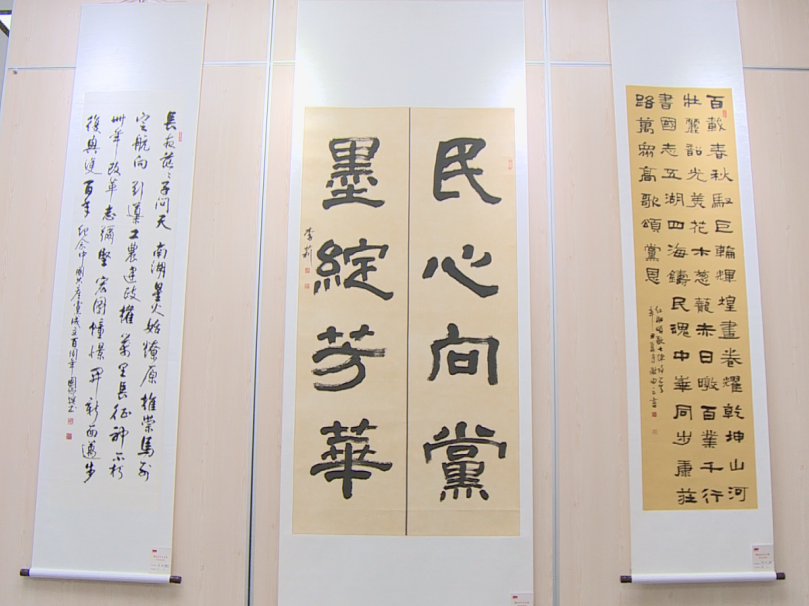 百載春秋馭巨輪輝煌畫卷耀乾坤山河
壯麗韶光美花木蔥蘢赤日暾百業千行
書國志五湖四海鑄民魂中華同步康莊
路萬眾高歌頌黨恩
民心向黨
墨綻芳華
李莉
長夜 问天 南湖星火始燎原 馬列
定航向 引導工農建政權 萬里長征神不朽
卅年改革志彌堅 宏圖憧憬 新 邁步
復興雙百年 紀念中國共產黨成立百周年